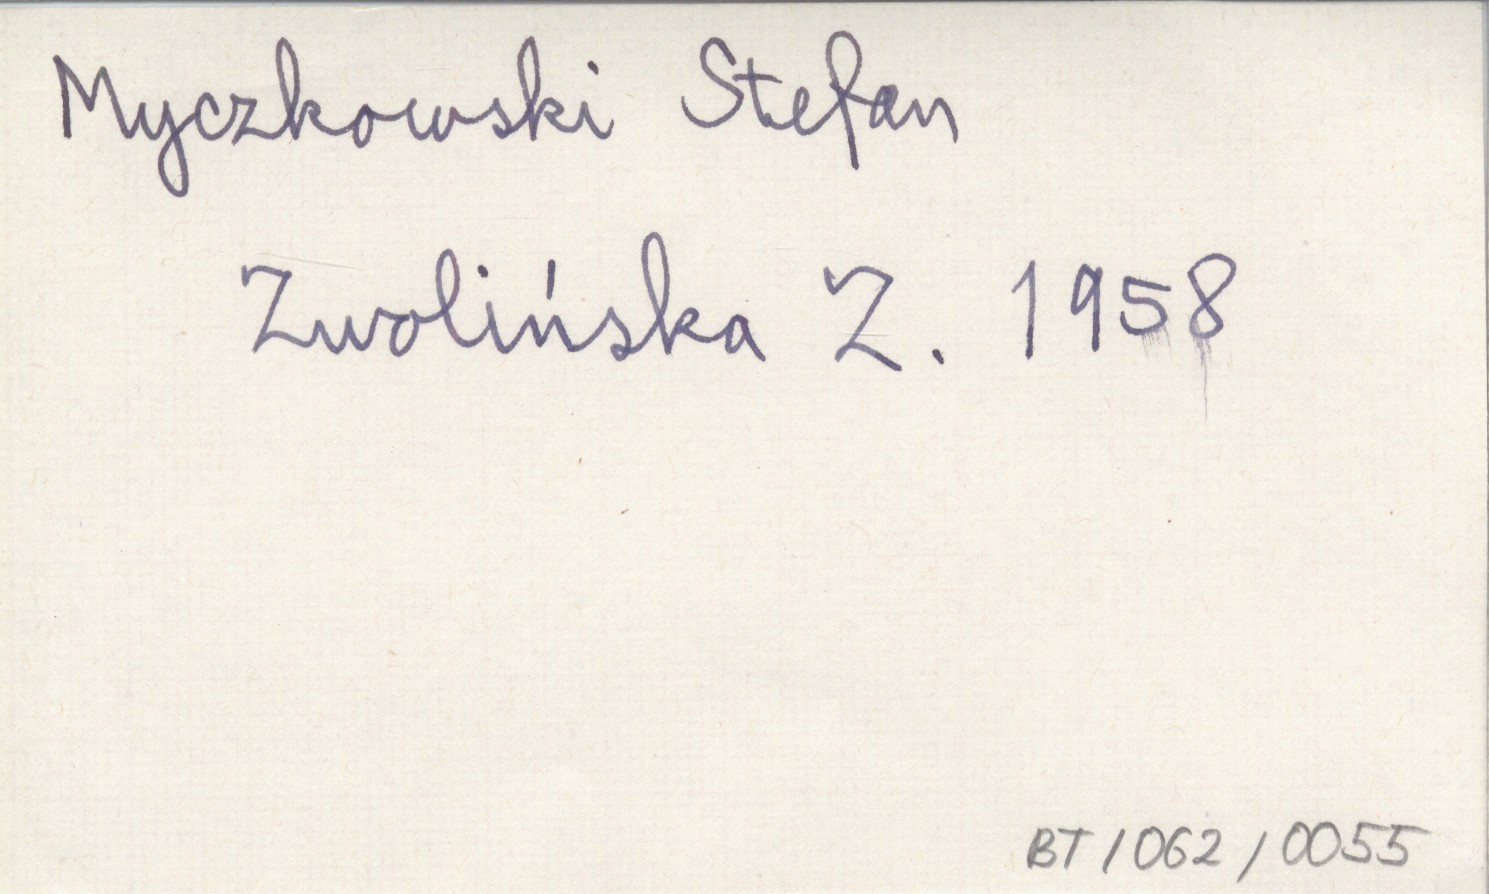 Myczkowski Stefan
Zwolińska Z. 1958
BT/062/0055